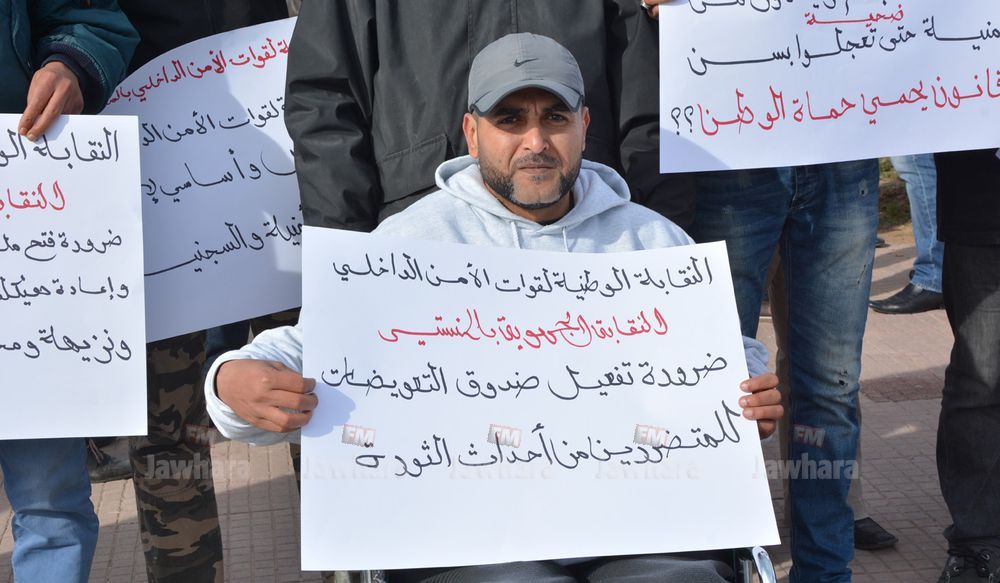 النقابة
لالنقابة
ضرورة فتح
وإعادة هيكلة
ونزيهة
لقوات الأمن الداخلي
لقوات الأمن
وأساسي
والسجنيـ
النقابة الوطنية لقوات الأمن الداخلي
النقابة الجهوية بالمنستير
ضرورة تفعيل صندوق التعويضات
للمتضررين من أحداث الثورة
ضحية
حتى تعجلوا بسن
قانون يحمي حماة الوطن؟؟
FM FM FM FM
Jawhara Jawhara Jawhara Jawhara Jawhara